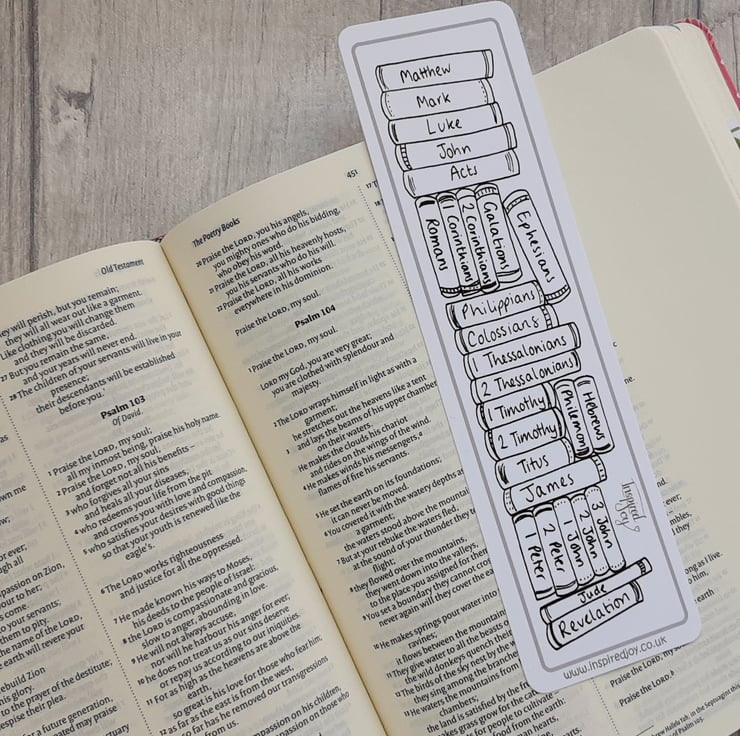 Old Testament
ey will perish, but you remain;
they will all wear out like a garment.
Like clothing you will change them
and they will be discarded.
27 But you remain the same,
and your years will never end.
28 The children of your servants will live in your
presence;
their descendants will be established
before you.'
Psalm 103
Of David
1 Praise the LORD, my soul;
all my inmost being, praise his holy name.
2 Praise the LORD, my soul,
and forget not all his benefits –
3 who forgives all your sins
and heals all your diseases,
4 who redeems your life from the pit
and crowns you with love and compassion,
5 who satisfies your desires with good things
so that your youth is renewed like the
eagle's.
6 The LORD works righteousness
and justice for all the oppressed.
7 He made known his ways to Moses,
his deeds to the people of Israel:
8 the LORD is compassionate and gracious,
slow to anger, abounding in love.
9 He will not always accuse,
nor will he harbour his anger for ever;
10 he does not treat us as our sins deserve
or repay us according to our iniquities.
11 For as high as the heavens are above the
earth,
so great is his love for those who fear him;
12 as far as the east is from the west,
so far has he removed our transgressions
from us.
The Poetry Books
451
20 Praise the LORD, you his angels,
you mighty ones who do his bidding,
who obey his word.
21 Praise the LORD, all his heavenly hosts,
you his servants who do his will.
22 Praise the LORD, all his works
everywhere in his dominion.
Praise the LORD, my soul.
Psalm 104
1 Praise the LORD, my soul.
LORD my God, you are very great;
you are clothed with splendour and
majesty.
2 The LORD wraps himself in light as with a
garment;
he stretches out the heavens like a tent
3 and lays the beams of his upper chambers
on their waters.
He makes the clouds his chariot
and rides on the wings of the wind.
4 He makes winds his messengers,
flames of fire his servants.
5 He set the earth on its foundations;
it can never be moved.
6 You covered it with the watery depths as
a garment;
the waters stood above the mountains
7 But at your rebuke the waters fled,
at the sound of your thunder they
flight;
8 they flowed over the mountains,
they went down into the valleys,
to the place you assigned for them
9 You set a boundary they cannot cross
never again will they cover the ea
10 He makes springs pour water into
ravines;
it flows between the mountains
11 They give water to all the beasts
the wild donkeys quench their
12 The birds of the sky nest by the w
they sing among the branches
13 He waters the mountains from
chambers;
the land is satisfied by the fr
Matthew
Mark
Luke
John
Acts
Romans
1 Corinthians
2 Corinthians
Galatians
Ephesians
Philippians
Colossians
1 Thessalonians
2 Thessalonians
1 Timothy
2 Timothy
Titus
Philemon
Hebrews
James
1 Peter
2 Peter
1 John
2 John
3 John
Jude
Revelation
Inspired
Joy
www.inspiredjoy.co.uk